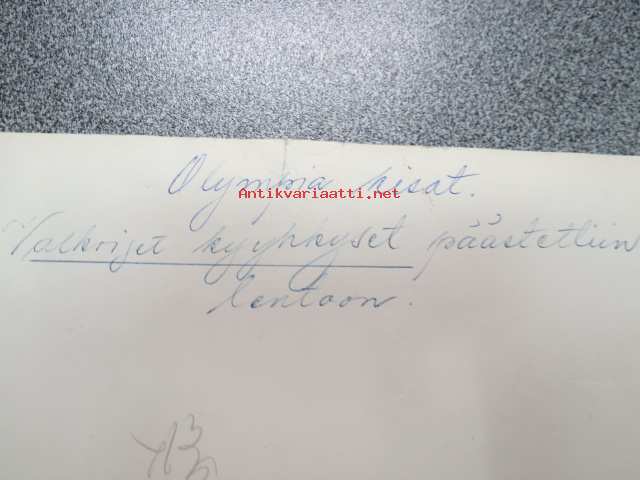 Olympia kisat.
Antikvariaatti.net
Valkoiset kyyhkyset päästettiin
lentoon.
Antikvariaatti.net